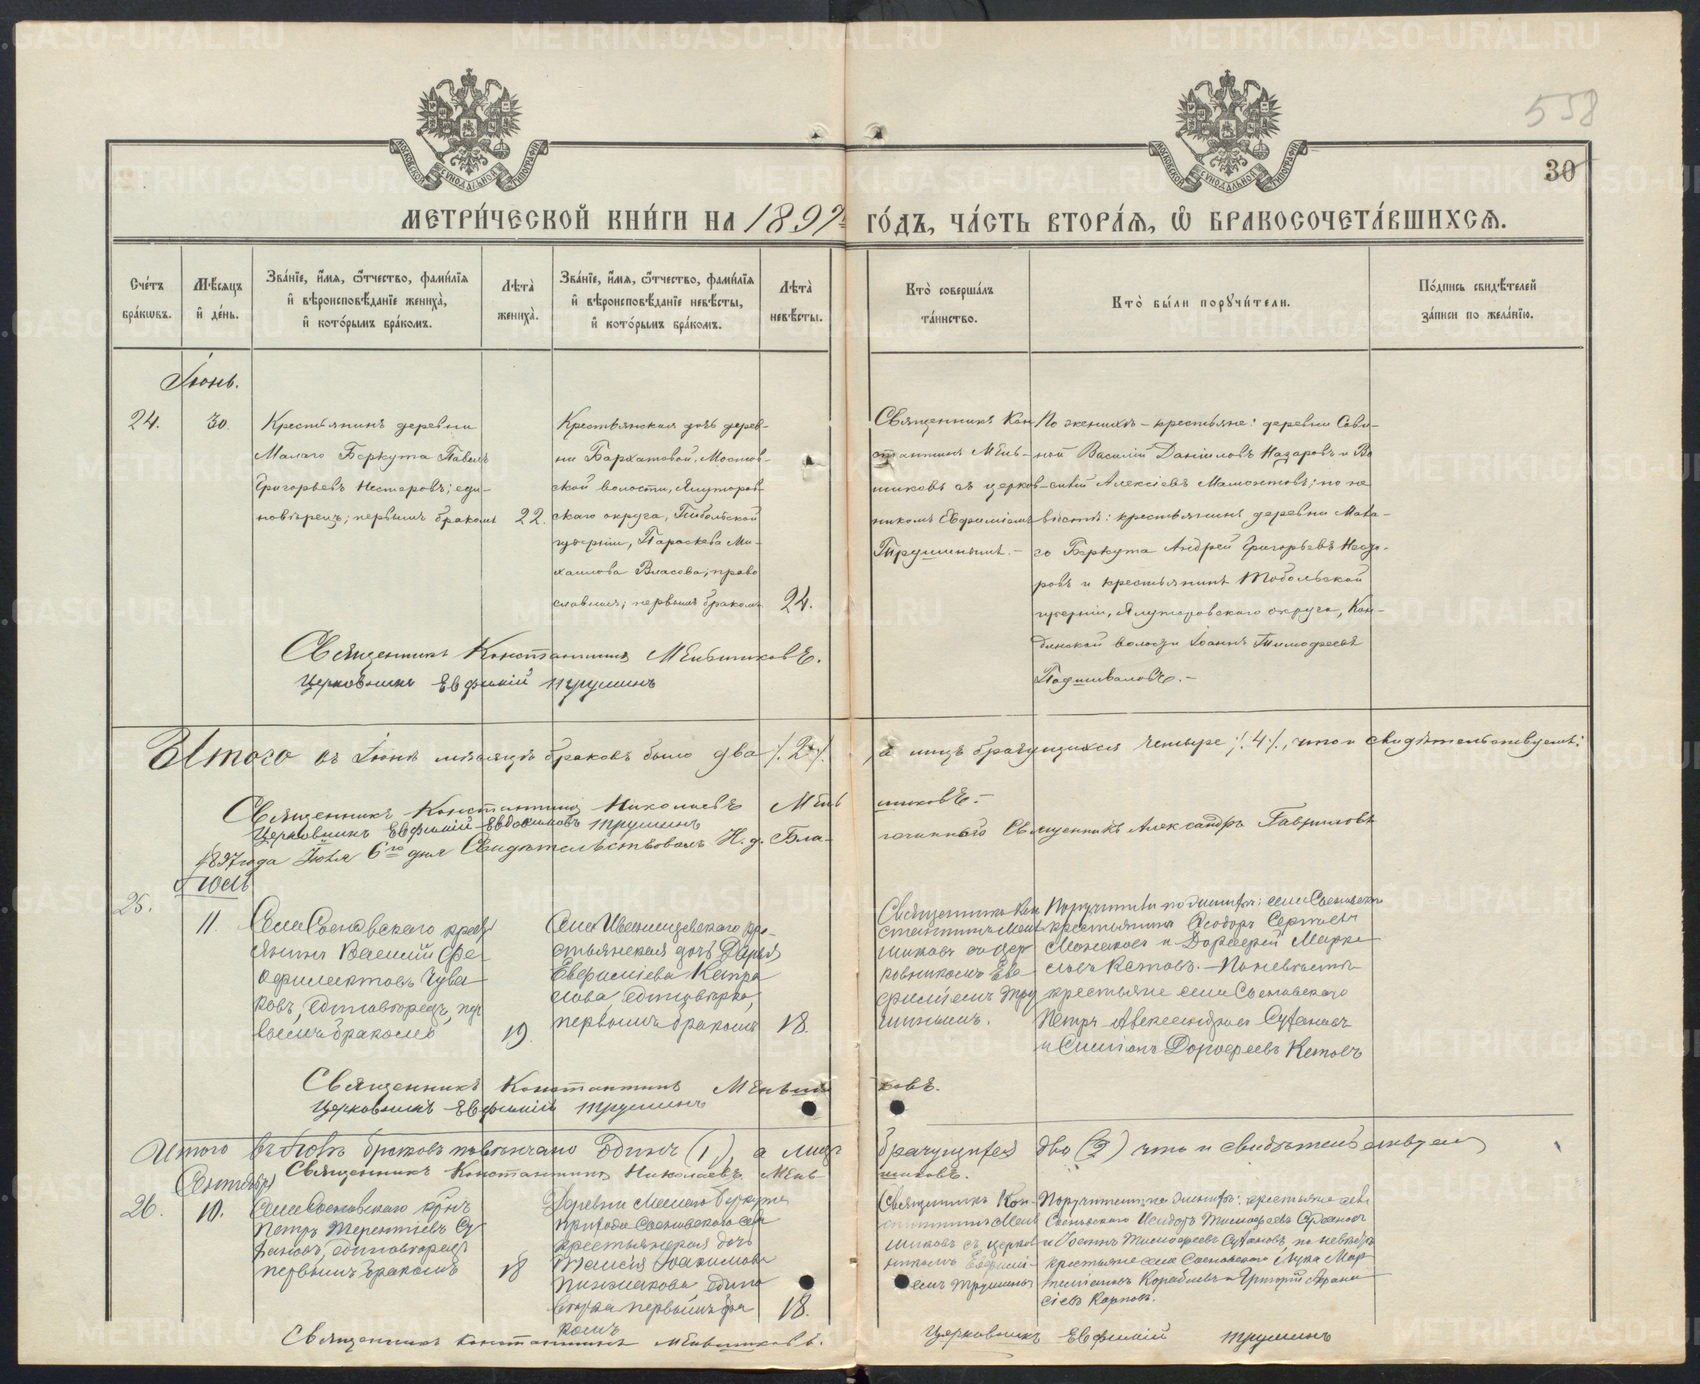 558
30
МЕТРИ́ЧЕСКОЙ КНИ́ГИ НА 1897 ГО́ДЪ, ЧА́СТЬ ВТОРА́Я, Ѽ БРАКОСОЧЕТА́ВШИХСЯ.
Сче́тъ бра́кѡвъ.
Мѣ́сяцъ и҆ де́нь.
Зва́нїе, и҆́мя, ѻ҆́тчество, фами́лїя и҆ вѣроисповѣ́данїе жениха̀, и҆ кото́рымъ бра́комъ.
Лѣта̀ жениха̀.
Зва́нїе, и҆́мя, ѻ҆́тчество, фами́лїя и҆ вѣроисповѣ́данїе невѣ́сты, и҆ кото́рымъ бра́комъ.
Лѣта̀ невѣ́сты.
Кто̀ соверша́лъ та́инство.
Кто̀ бы́ли порꙋчи́тели.
По́дпись свидѣ́телей за́писи по жела́нїю.
Іюнь.
24.
30.
Крестьянинъ деревни
Малаго Беркута Павелъ
Григорьевъ Нестеровъ; еди-
новѣрецъ; первымъ бракомъ
22.
Крестьянская дочь дерев-
ни Бархатовой, Мостов-
ской волости, Ялуторов-
скаго округа, Тобольской
губерніи, Параскева Ми-
хаилова Власова; право
славная; первымъ бракомъ
24.
Священникъ Кон-
стантинъ Мень-
шиковъ съ церков-
никомъ Евфиміемъ
Трушинымъ.-
По женихѣ - крестьяне: деревни Сави-
ной Василій Даніиловъ Назаровъ и Ва
силій Алексіевъ Мамонтовъ; по не
вѣстѣ: крестьянинъ деревни Мала-
го Беркута Андрей Григорьевъ Несте-
ровъ и крестьянинъ Тобольской
губерніи, Ялуторовскаго округа, Кон-
динской волости Іоаннъ Тимофеевъ
Подшиваловъ.-
Священникъ Константинъ Меньшиковъ.
Церковникъ Евфимій Трушинъ
Итого въ Іюнѣ мѣсяцѣ браковъ было два /.2./., а лицъ брачущихся четыре /.4./., что и свидѣтельствуемъ:
Священникъ Константинъ Николаевъ Меньшиковъ.-
Церковникъ Евфимій Евдокимовъ Трушинъ
1897 года Іюля 6го дня Свидѣтельствовалъ И. д. Благочиннаго Священникъ Александръ Гавриловъ
Іюль
25.
11.
Села Сосновскаго крестъ
янинъ Василій Фе-
офилактовъ Чува
ковъ, единовѣрецъ, пер
вымъ бракомъ
19.
Села Ивонищевскаго кре-
стьянская дочь Дарья
Евфиміева
единовѣрка,
первымъ бракомъ
18.
Священникъ Кон
стантинъ Мень
шиковъ съ цер
ковникомъ Ев-
фиміемъ Тру
шинымъ.
Поручители по женихѣ: села Сосновска
крестьянинъ Ѳеодоръ Сергѣевъ
и Дорофей Марке
ловъ Кетовъ.- По невѣстѣ
крестьяне села Сосновскаго
Петръ Александровъ Суханов
и Симеонъ Дорофеевъ Кетовъ
Священникъ Константинъ Меньшиковъ.
Церковникъ Евфимій Трушинъ
Итого въ Іюлѣ браковъ повѣнчано одинъ (1), а лицъ брачущихся два (2) что и свидѣтельствуемъ
Священникъ Константинъ Николаевъ Меньшиковъ.
Сентябрь
26.
10.
Села Сосновскаго кр-нъ
Петръ Терентіевъ Су
хановъ, единовѣрецъ
первымъ бракомъ
18
Деревни Малаго Беркута
прихода Сосновскаго села
крестьянская дочь
Таисія Іоакимова
едино
вѣрка первымъ бра
комъ
18.
Священникъ Кон-
стантинъ Мень
шиковъ съ церков
никомъ Евфимі-
емъ Трушинымъ
Поручители: по женихѣ: крестьяне села
Сосновскаго Исидоръ Тимофеевъ Суханов
и Тимофеевъ Сухановъ, по невѣстѣ
крестьяне села Сосновскаго Лука Мар
и Григорій Афана
сіевъ Карповъ.
Священникъ Константинъ Меньшиковъ.
Церковникъ Евфимій Трушинъ
METRIKI.GASO-URAL.RU